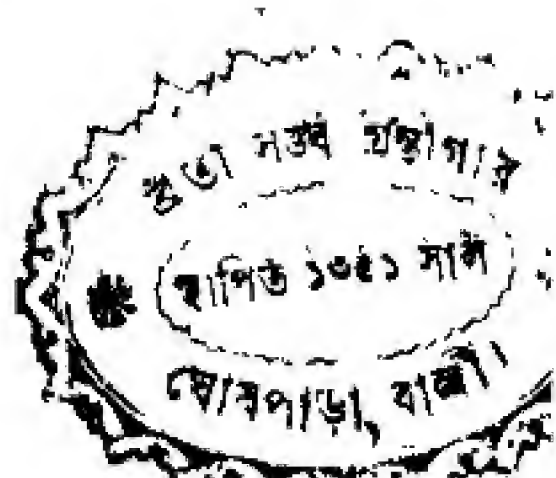 গ্রন্থাগার
স্থাপিত ১৩৫১ সাল
ঘোষপাড়া, বালী।